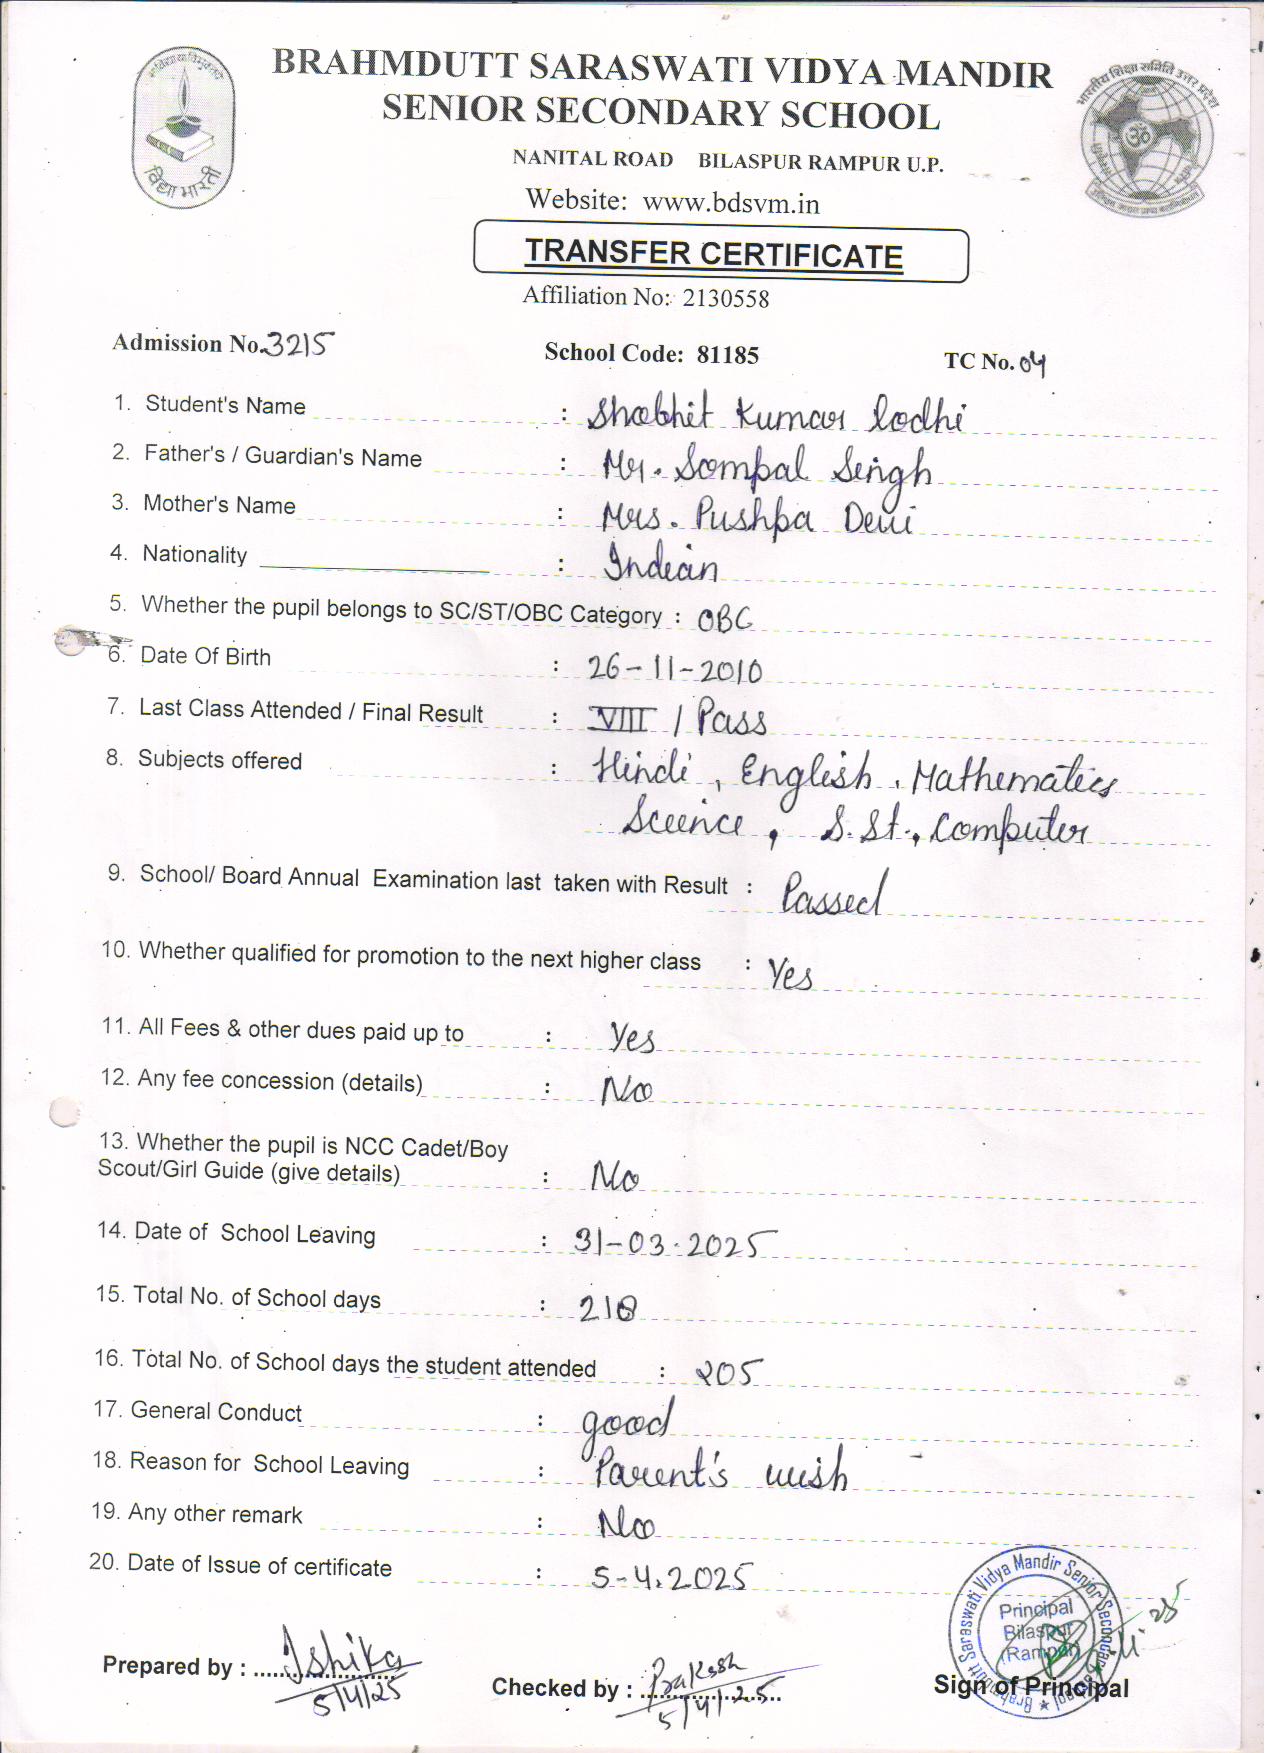 BRAHMDUTT SARASWATI VIDYA MANDIR
SENIOR SECONDARY SCHOOL
NANITAL ROAD BILASPUR RAMPUR U.P.
Website: www.bdsvm.in
विद्या भारती
भारतीय शिक्षा समिति उत्तर प्रदेश
TRANSFER CERTIFICATE
Affiliation No: 2130558
Admission No. 3215 School Code: 81185 TC No. 04
1. Student's Name : Shobhit Kumar Lodhi
2. Father's / Guardian's Name : Mr. Sompal Singh
3. Mother's Name : Mrs. Pushpa Devi
4. Nationality : Indian
5. Whether the pupil belongs to SC/ST/OBC Category : OBC
6. Date Of Birth : 26-11-2010
7. Last Class Attended / Final Result : VIII / Pass
8. Subjects offered : Hindi, English, Mathematics
Science, S.St., Computer
9. School/ Board Annual Examination last taken with Result : Passed
10. Whether qualified for promotion to the next higher class : Yes
11. All Fees & other dues paid up to : Yes
12. Any fee concession (details) : No
13. Whether the pupil is NCC Cadet/Boy
Scout/Girl Guide (give details) : No
14. Date of School Leaving : 31-03-2025
15. Total No. of School days : 218
16. Total No. of School days the student attended : 205
17. General Conduct : good
18. Reason for School Leaving : Parent's wish
19. Any other remark : No
20. Date of Issue of certificate : 5-4.2025
Brahmdutt Saraswati Vidya Mandir Senior Secondary School
Principal
Bilaspur
(Rampur)
Prepared by : Ishika
5/4/25
Checked by : Prakash
5/4/25
Sign of Principal